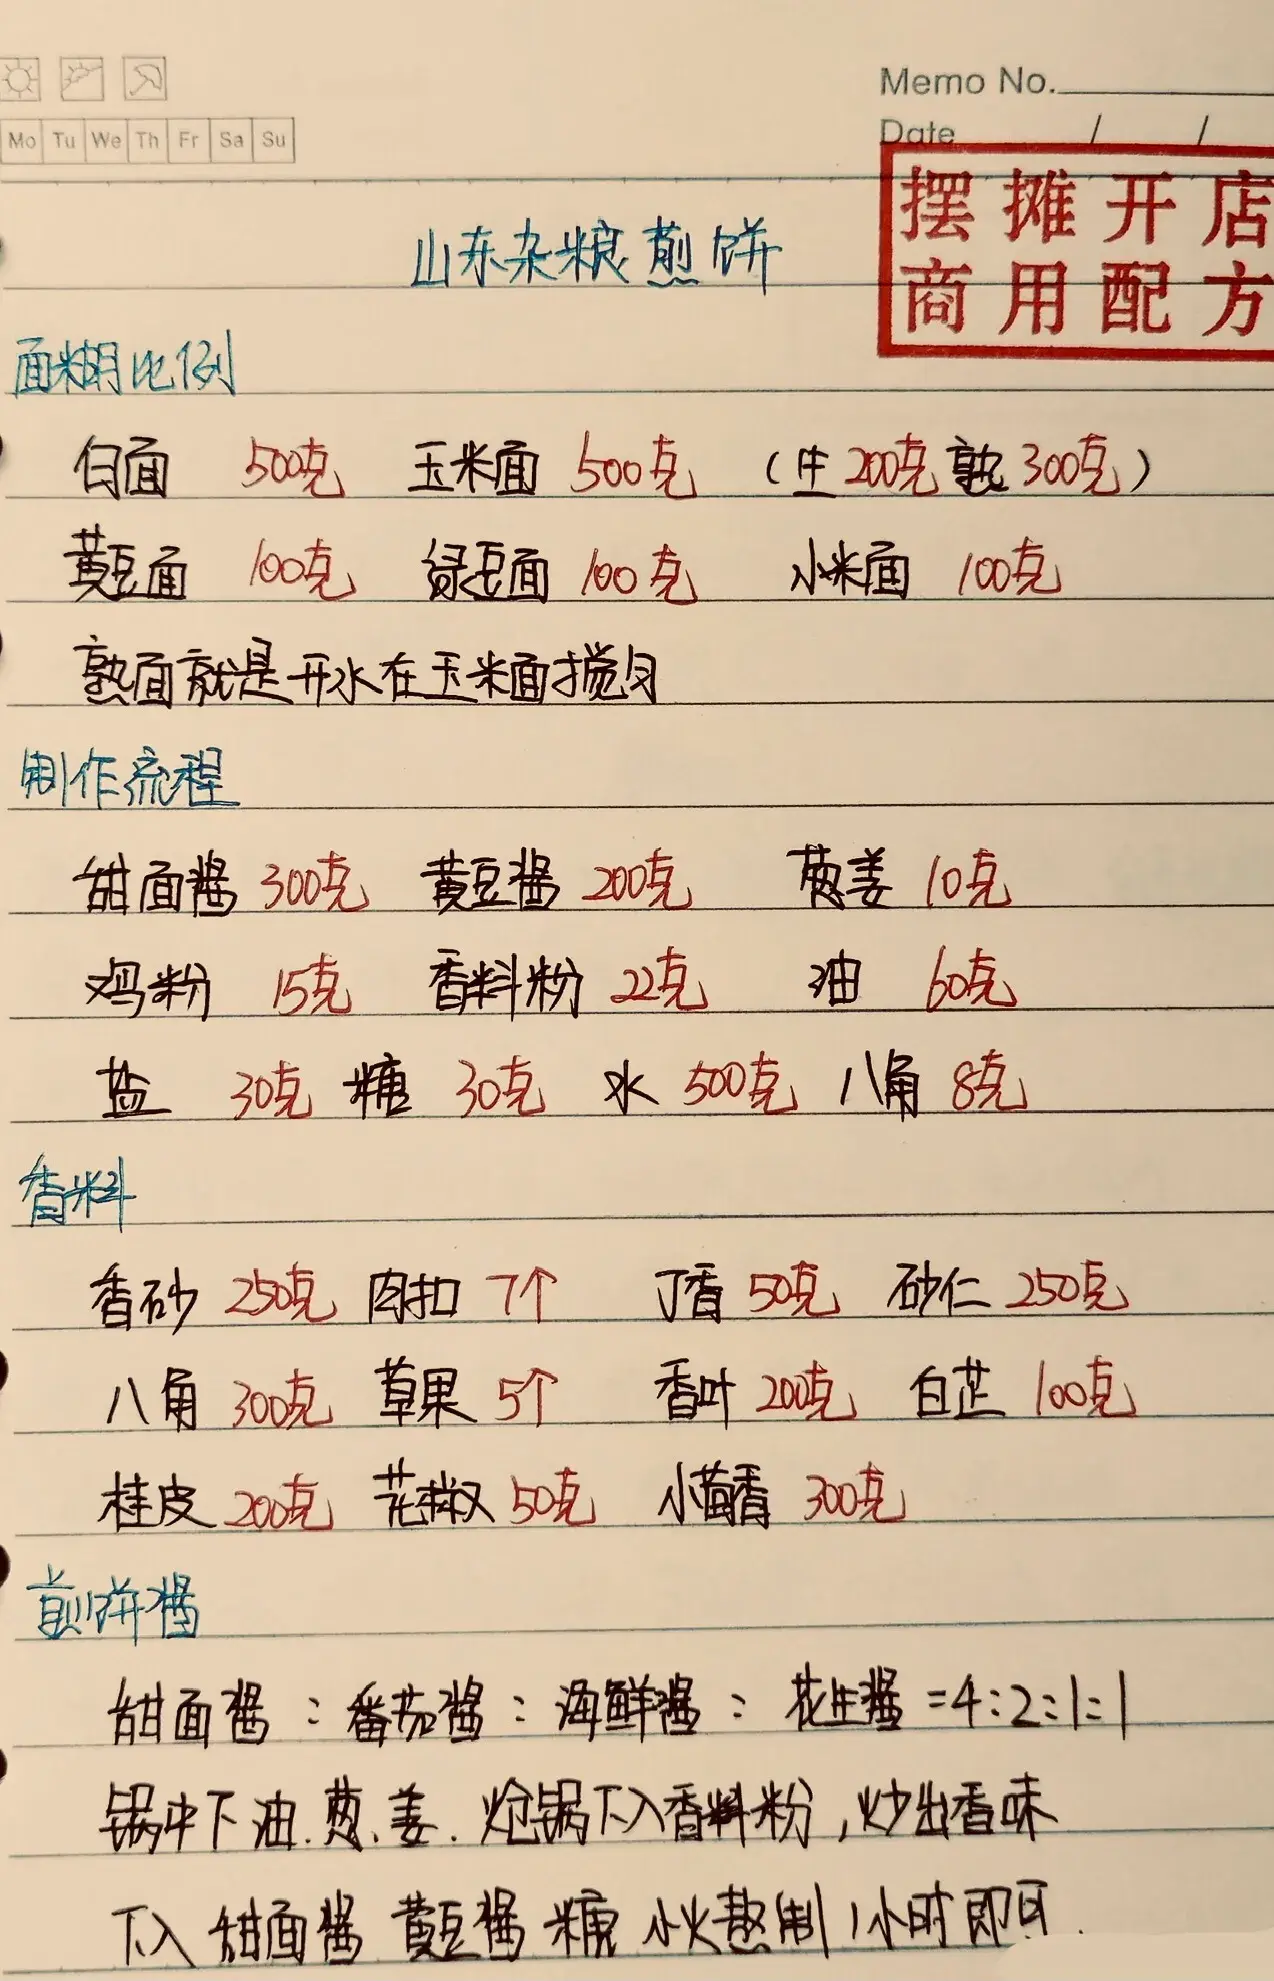 Memo No.
Mo Tu We Th Fr Sa Su
Date / /
摆摊开店
商用配方
山东杂粮煎饼
面糊比例
白面 500克 玉米面 500克 (生200克 熟300克)
黄豆面 100克 绿豆面 100克 小米面 100克
熟面就是开水在玉米面搅匀
制作流程
甜面酱 300克 黄豆酱 200克 葱姜 10克
鸡粉 15克 香料粉 22克 油 60克
盐 30克 糖 30克 水 500克 八角 8克
香料
香砂 250克 肉扣 7个 丁香 50克 砂仁 250克
八角 300克 草果 5个 香叶 200克 白芷 100克
桂皮 200克 花椒 50克 小茴香 300克
煎饼酱
甜面酱:番茄酱:海鲜酱:花生酱=4:2:1:1
锅中下油.葱.姜.炝锅下入香料粉,炒出香味
下入甜面酱 黄豆酱 糖 小火熬制1小时即可.